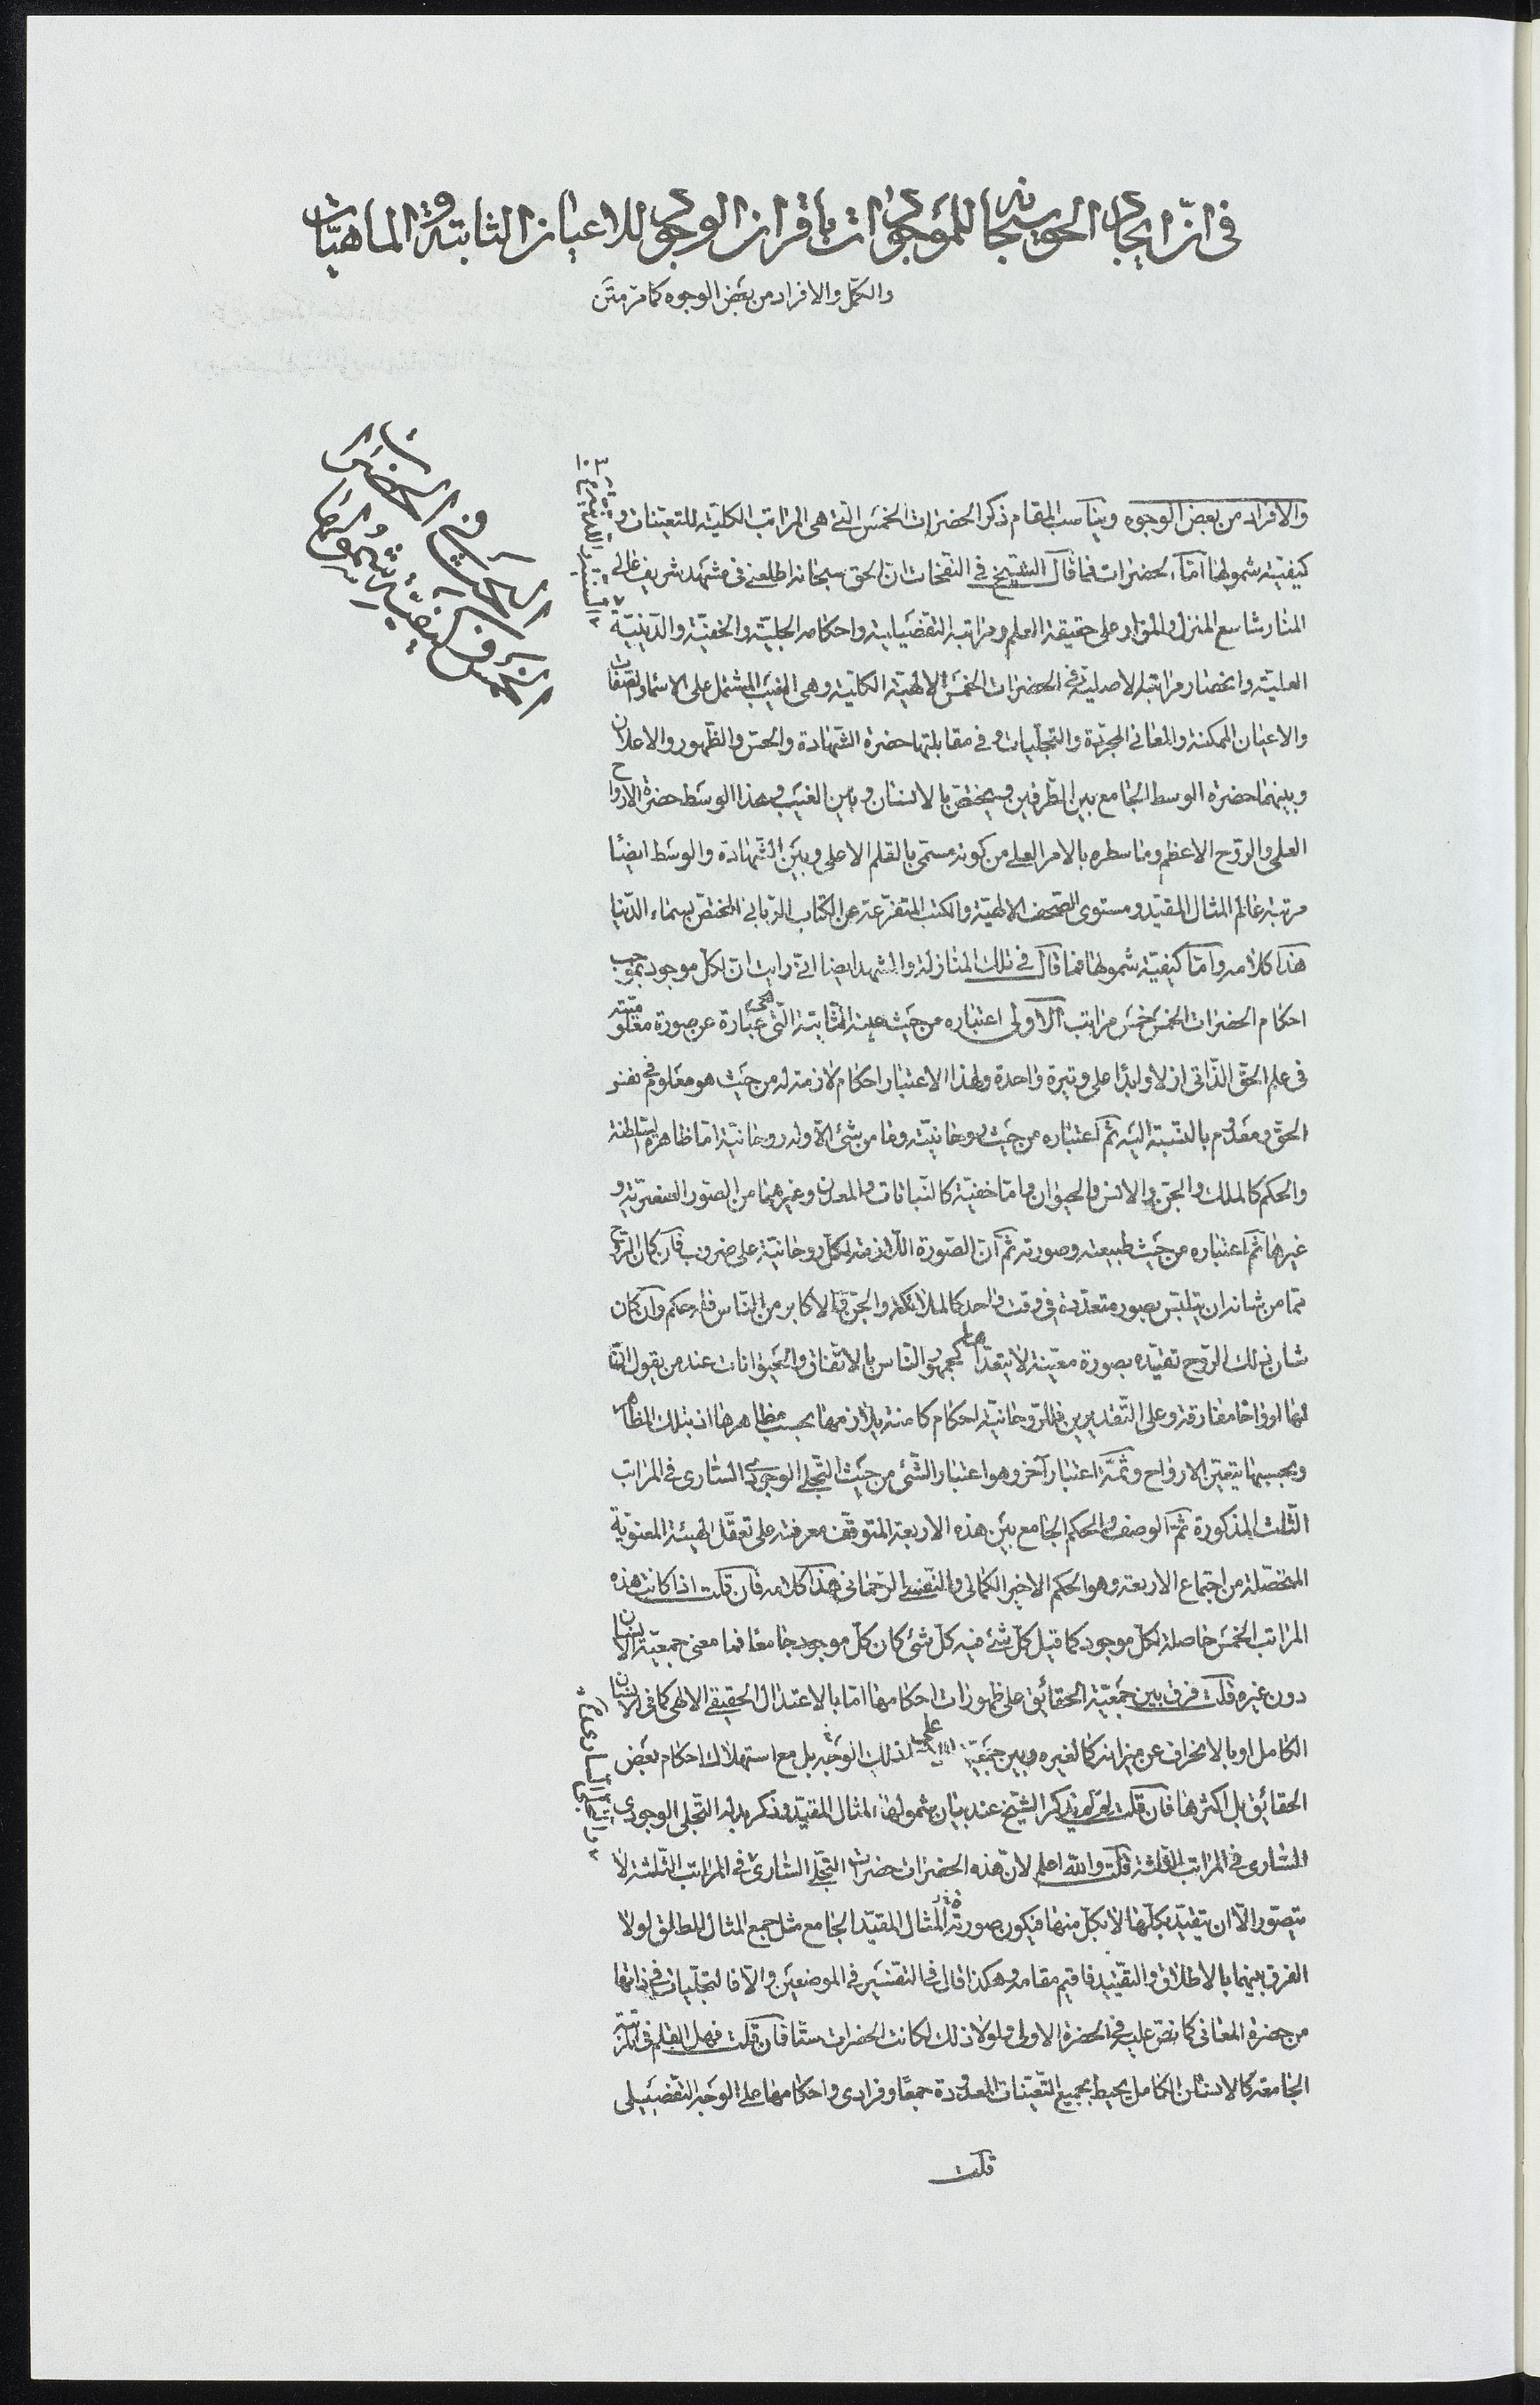 في انّ ايجاد الحق سبحانه للموجودات باقتران الوجود للاعيان الثابتة والماهيّات
والكمّل والافراد من بعض الوجوه كما مرّ متن
والافراد من بعض الوجوه ويناسب المقام ذكر الحضرات الخمس التي هي المراتب الكلية للتعينات و
كيفية شمولها امّا الحضرات فما قال الشيخ في النفحات ان الحق سبحانه اطلعني في مشهد شريف عالي
المنار شاسع المنزل والمزار على حقيقة العلم ومراتبه التفصيلية واحكامه الجلية والخفية والدينيّة
العلية وانحصار مراتبه الاصلية في الحضرات الخمس الالهية الكلية وهي الغيب المشتمل على الاسماء والصفات
والاعيان الممكنة والمعاني المجردة والتجليات وفي مقابلتها حضرة الشهادة والحس والظهور والاعلان
وبينهما حضرة الوسط الجامع بين الطرفين ويختص بالانسان وبين الغيب وهذا الوسط حضرة الارواح
العلى والروح الاعظم وما سطره بالامر العلي من كونه مسمّى بالقلم الاعلى وبين الشهادة والوسط ايضًا
مرتبة عالم المثال المقيّد ومستوى الصحف الالهيّة والكتب المتفرعة عن الكتاب الرّباني المختص بسماء الدّنيا
هذا كلامه وامّا كيفيّة شمولها فما قال في تلك المنازلة والمشهد ايضا انّي رايت ان لكل موجود بموجب
احكام الحضرات الخمس خمس مراتب الاولى اعتباره من حيث عينه الثابتة التي هي عبارة عن صورة معلوميّته
في علم الحقّ الذّاتي ازلا وابدًا على وتيرة واحدة ولهذا الاعتبار احكام لازمة له من حيث هو معلوم في نفس
الحقّ ومعدوم بالنسبة اليه ثم اعتباره من حيث روحانيّته وما من شئ الّا وله روحانيّة امّا ظاهرة السّلطنة
والحكم كالملك والجن والانس والحيوان وامّا خفيّة كالنّباتات والمعدن وغيرهما من الصّور العنصريّة و
غيرها ثم اعتباره من حيث طبيعته وصورته ثم ان الصّورة اللازمة لكل روحانيّة على ضروب فان كان الرّوح
ممّا من شانه ان يتلبّس بصور متعدّدة في وقت واحد كالملائكة والجنّ والاكابر من النّاس فله حكم وان كان
شان ذلك الرّوح تقيّده بصورة معيّنة لا يتعدّاها كجمهور النّاس بالاتّفاق والحيوانات عند من يقول انّ
لها ارواحا مفارقة وعلى التّقديرين فللرّوحانيّة احكام كامنة يلازمها بحسب مظاهرها اذ بتلك المظاهر
وبحسبها يتعيّن الارواح وثمّة اعتبار آخر وهو اعتبار الشّئ من حيث التّجلّي الوجودي السّاري في المراتب
الثّلث المذكورة ثمّ الوصف والحكم الجامع بين هذه الاربعة المتوقّف معرفته على تعقّل الهيئة المعنويّة
المتحصّلة من اجتماع الاربعة وهو الحكم الاخير الكمالي والنّفس الرّحماني هذا كلامه فان قلت اذا كانت هذه
المراتب الخمس حاصلة لكلّ موجود كما قيل كلّ شئ فيه كلّ شئ كان كلّ موجود جامعًا فما معنى جمعيّة الانسان
دون غيره قلت فرق بين جمعيّة الحقائق على ظهورات احكامها امّا بالاعتدال الحقيقي الالهي كما في الانسان
الكامل او بالانحراف عن ميزانه كالغيره وبين جمعيّة لا على ذلك الوجه بل مع استهلاك احكام بعض
الحقائق بل اكثرها فان قلت لم لم يذكر الشيخ عند بيان شمولها المثال المقيّد وذكر بدله التّجلّي الوجودي
السّاري في المراتب الثلاثة قلت والله اعلم لانّ هذه الحضرات حضرات التجلّي السّاري في المراتب الثلثة لا
يتصوّر الّا ان يتقيّد بكلّها لا بكلّ منها فيكون صورته المثال المقيّد الجامع مثل جمع المثال المطلق لولا
الفرق بينهما بالاطلاق والتقييد فاقيم مقامه وهكذا قال في التفسير في الموضعين والّا فالتجلّيات في ذاتها
من حضرة المعاني كما نصّ عليه في الحضرة الاولى ولولا ذلك لكانت الحضرات ستّا فان قلت فهل القلم في مرتبته
الجامعة كالانسان الكامل يحيط بجميع التّعيّنات المعدودة جمعًا وفرادى واحكامها على الوجه التفصيلي
قلت